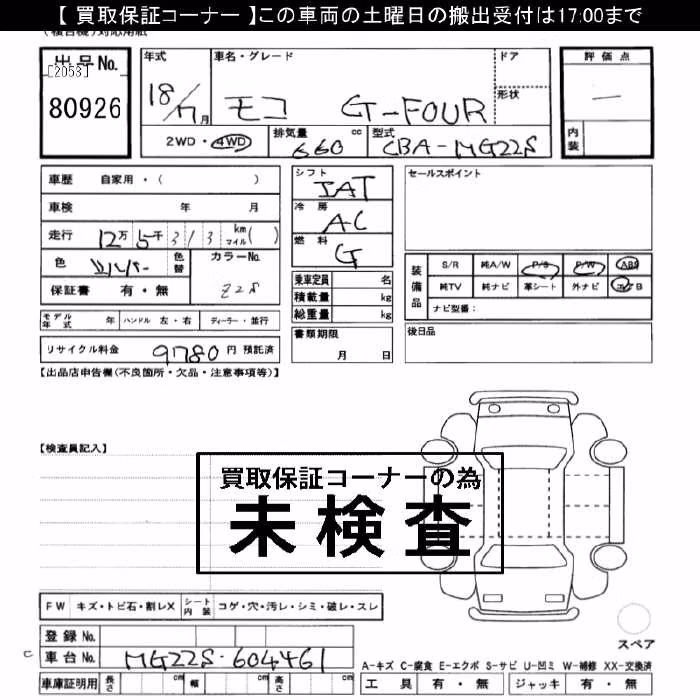 【 買取保証コーナー 】この車両の土曜日の搬出受付は17:00まで
出品No.
[2053]
80926
年式
18/7月
車名・グレード
モコ G-FOUR
ドア
形状
評価点
—
内装
2WD・4WD
排気量 660 cc
型式 CBA-MG22S
車歴 自家用・( )
車検 年 月
走行 12万5千313 km マイル( )
色 シルバー
色替
カラーNo.
Z2S
保証書 有・無
シフト IAT
冷房 AC
燃料 G
乗車定員 名
積載量 kg
総重量 kg
セールスポイント
装備品
S/R 純A/W P/S P/W ABS
純TV 純ナビ 革シート 外ナビ エアB
ナビ型番:
モデル年式 年 ハンドル 左・右 ディーラー・並行
書類期限
月 日
後日品
リサイクル料金 9780 円 預託済
【出品店申告欄(不良箇所・欠品・注意事項等)】
【検査員記入】
買取保証コーナーの為
未検査
FW キズ・トビ石・割レX
シート内装 コゲ・穴・汚レ・シミ・破レ・スレ
スペア
登録No.
C 車台No. MG22S-604461
A-キズ C-腐食 E-エクボ S-サビ U-凹ミ W-補修 XX-交換済
車庫証明用 長さ cm 幅 cm 高さ cm
工具 有・無 ジャッキ 有・無